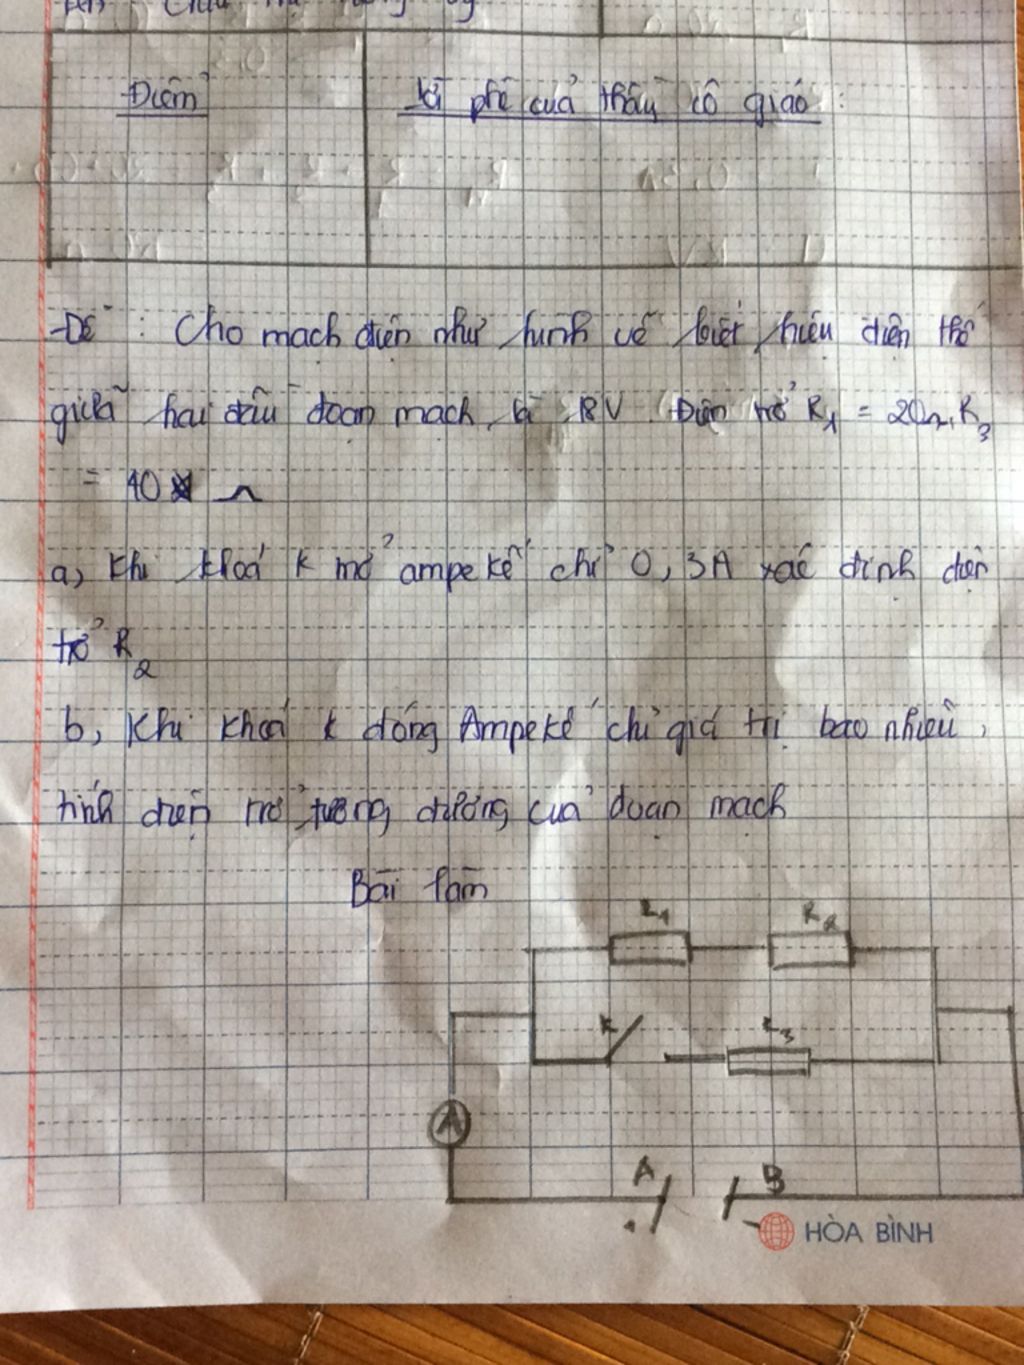 Điểm
Lời phê của thầy cô giáo :
Đề : Cho mạch điện như hình vẽ biết hiệu điện thế
giữa hai đầu đoạn mạch là 18V. Điện trở R1 = 20Ω, R3
= 40 Ω
a, Khi khoá K mở ampe kế chỉ 0,3A xác định điện
trở R2
b, Khi khoá K đóng Ampe kế chỉ giá trị bao nhiêu,
tính điện trở tương đương của đoạn mạch
Bài làm
R1 R2
K R3
A
A B
HÒA BÌNH